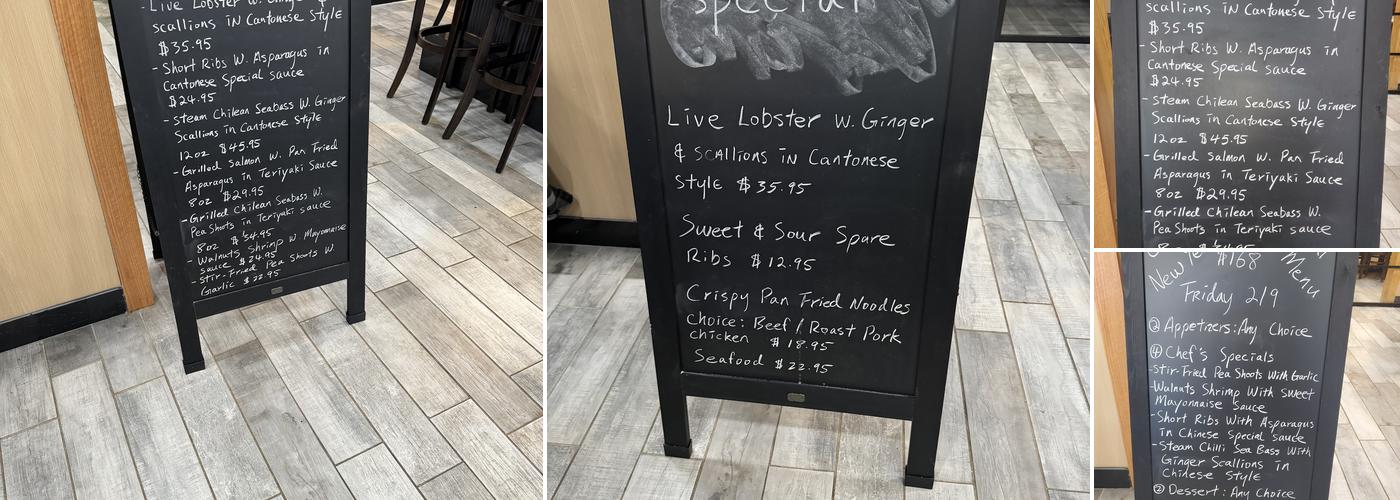 - Live Lobster w. Ginger &
scallions in Cantonese Style
$35.95
- Short Ribs W. Asparagus in
Cantonese Special sauce
$24.95
- Steam Chilean Seabass W. Ginger
Scallions in Cantonese Style
12oz $45.95
- Grilled Salmon W. Pan Fried
Asparagus in Teriyaki Sauce
8oz $29.95
- Grilled Chilean Seabass W.
Pea Shoots in Teriyaki sauce
8oz $34.95
- Walnuts Shrimp W Mayonnaise
sauce $24.95
- Stir-Fried Pea Shorts W.
Garlic $22.95
special
Live Lobster w. Ginger
& scallions in Cantonese
Style $35.95
Sweet & Sour Spare
Ribs $12.95
Crispy Pan Fried Noodles
Choice: Beef / Roast Pork
chicken $18.95
Seafood $22.95
scallions in Cantonese Style
$35.95
- Short Ribs W. Asparagus in
Cantonese Special sauce
$24.95
- Steam Chilean Seabass W. Ginger
Scallions in Cantonese Style
12oz $45.95
- Grilled Salmon W. Pan Fried
Asparagus in Teriyaki Sauce
8oz $29.95
- Grilled Chilean Seabass W.
Pea Shoots in Teriyaki sauce
New Menu
$168
Friday 2/9
② Appetizers: Any Choice
④ Chef's Specials
- Stir-Fried Pea Shoots With Garlic
- Walnuts Shrimp With Sweet
Mayonnaise Sauce
- Short Ribs With Asparagus
in Chinese Special sauce
- Steam Chilli Sea Bass With
Ginger Scallions in
Chinese Style
② Dessert: Any Choice